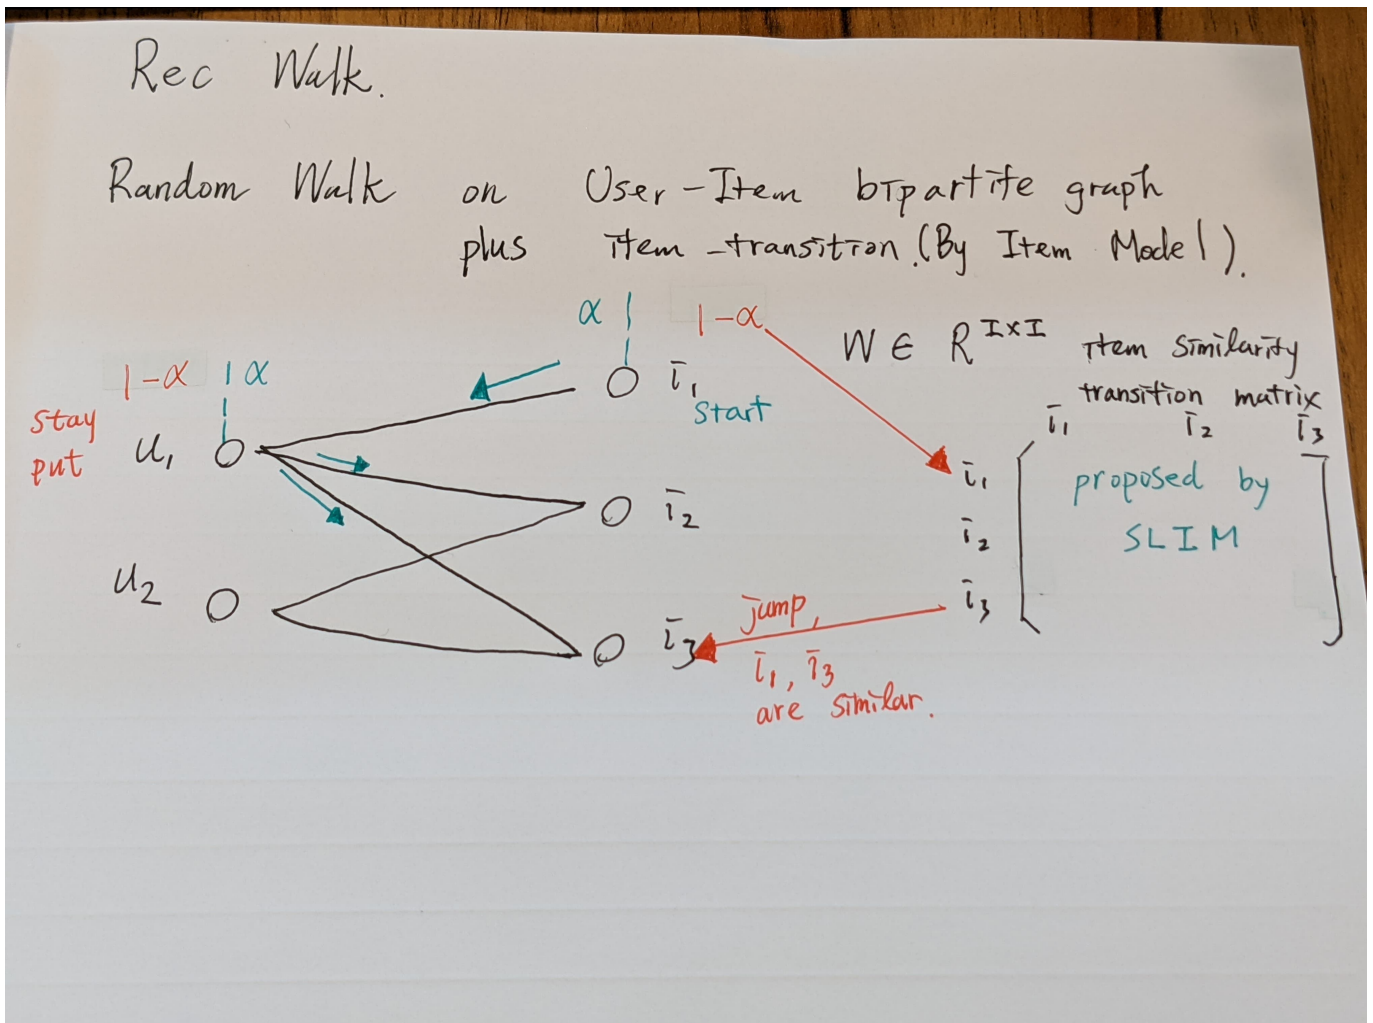 Rec Walk.
Random Walk on User-Item bipartite graph
plus item-transition.(By Item Model).
α 1-α
W ∈ R^{I×I} item similarity
transition matrix
1-α α
stay
put
u₁
i₁
Start
i₁ i₂ i₃
i₁
proposed by
SLIM
i₂
i₂
u₂
i₃
jump,
i₃
i₁, i₃
are similar.